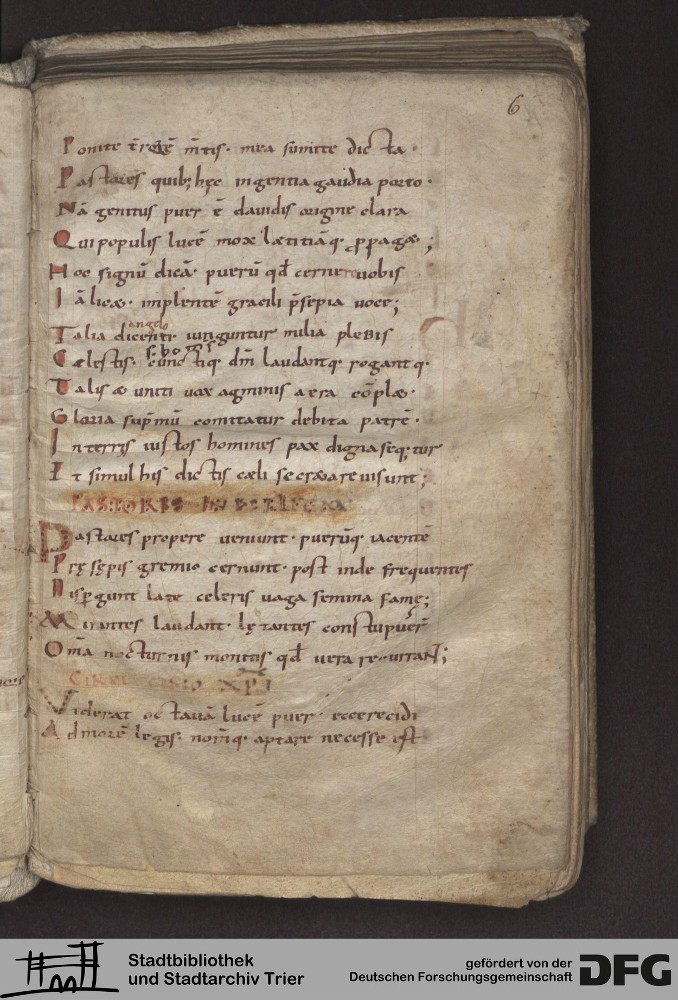 6
Ponite t̄rorē m̄tis· mea sumite dicta·
Pastores quib; hęc ingentia gaudia porto·
Nā genitus puer ē dauidis origine clara
Qui populis lucē mox lætitiāq· ꝓpaget;
Hoc signū dicā· puerū qđ cernere uobis
Iā licet· implentē gracili p̄sepia uoce;
angelo
Talia dicenti iunguntur milia plebis
Cælestis· cunctiq· dn̄m laudantq· rogantq·
Talis & uniti uox agminis aera cōplet·
Gloria sup̄mū comitatur debita patrē·
In terris iustos homines pax digna seq;tur
Et simul his dictis cæli secreta reuisunt;
PASTORES
Pastores propere ueniunt· puerūq· iacentē
Pręsępis gremio cernunt· post inde frequentes
Disꝑgunt late celeris uaga semina famę;
Mirantes laudant· lętantes constupuer̄
Om̄a nocturnis montis qđ uera recurrant;
XP̄I
Viderat octauā lucē puer· ecce recidi
Ad morē legis· nom̄q· aptare necesse est
Stadtbibliothek
und Stadtarchiv Trier
gefördert von der
Deutschen Forschungsgemeinschaft
DFG